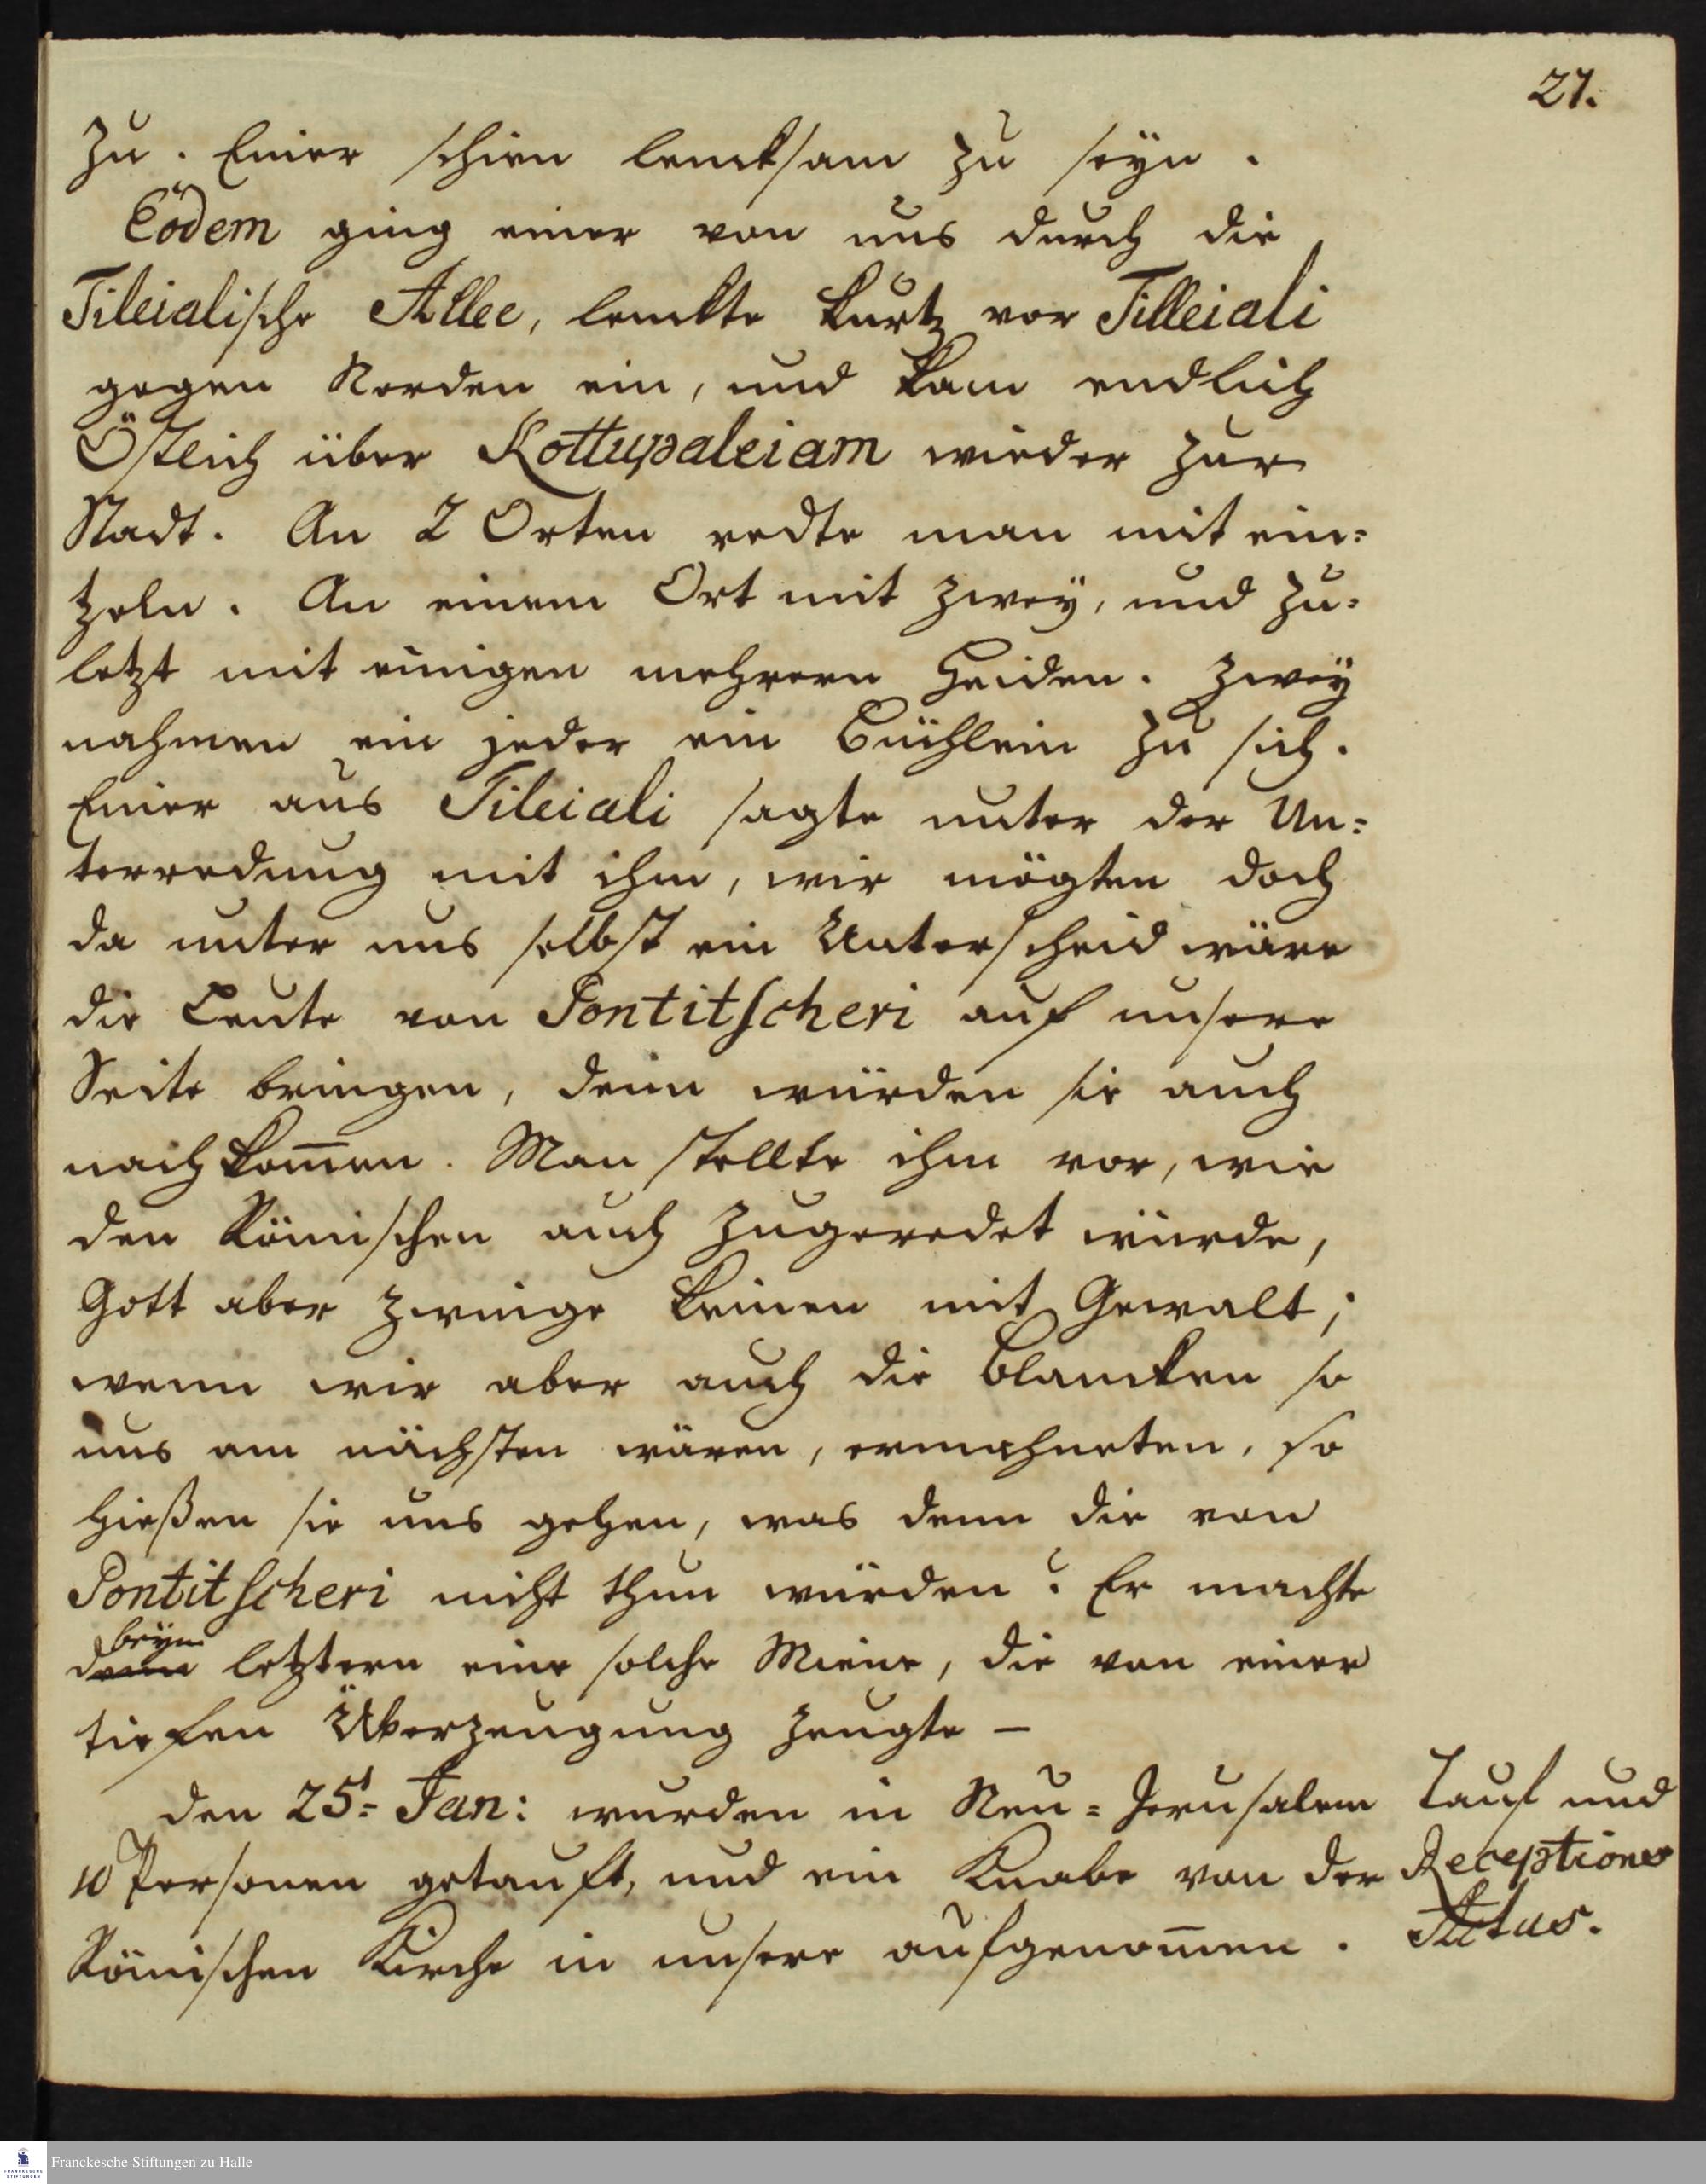 27.
zu. Einer schien lencksam zu seÿn.
Eodem ging einer von uns durch die
Tileialische Allee, lenckte kurtz vor Tilleiali
gegen Norden ein, und kam endlich
Östlich über Kottupaleiam wieder zur
Stadt. An 2 Orten redte man mit ein=
tzeln. An einem Ort mit zweÿ, und zu=
letzt mit einigen mehrern Heiden. Zweÿ
nahmen ein jeder ein Büchlein zu sich.
Einer aus Tileiali sagte unter der Un=
terredung mit ihm, wir mögten doch
da unter uns selbst ein Unterscheid wäre
die Leute von Pontitscheri auf unsere
Seite bringen, denn würden sie auch
nachkom̅en. Man stellte ihm vor, wie
den Römischen auch zugeredet würde,
Gott aber zwinge keinen mit Gewalt;
wenn wir aber auch die Blancken so
uns am nächsten wären, ermahneten, so
hießen sie uns gehen, was denn die von
Pontitscheri nicht thun würden? Er machte
beym
denn letztern eine solche Miene, die von einer
tiefen Überzeugung zeugte –
den 25t Jan: wurden in Neu=Jerusalem
10 Personen getauft, und ein Knabe von der
Römischen Kirche in unsere aufgenom̅en.
Tauf und
Receptions
Actus.
Franckesche Stiftungen zu Halle